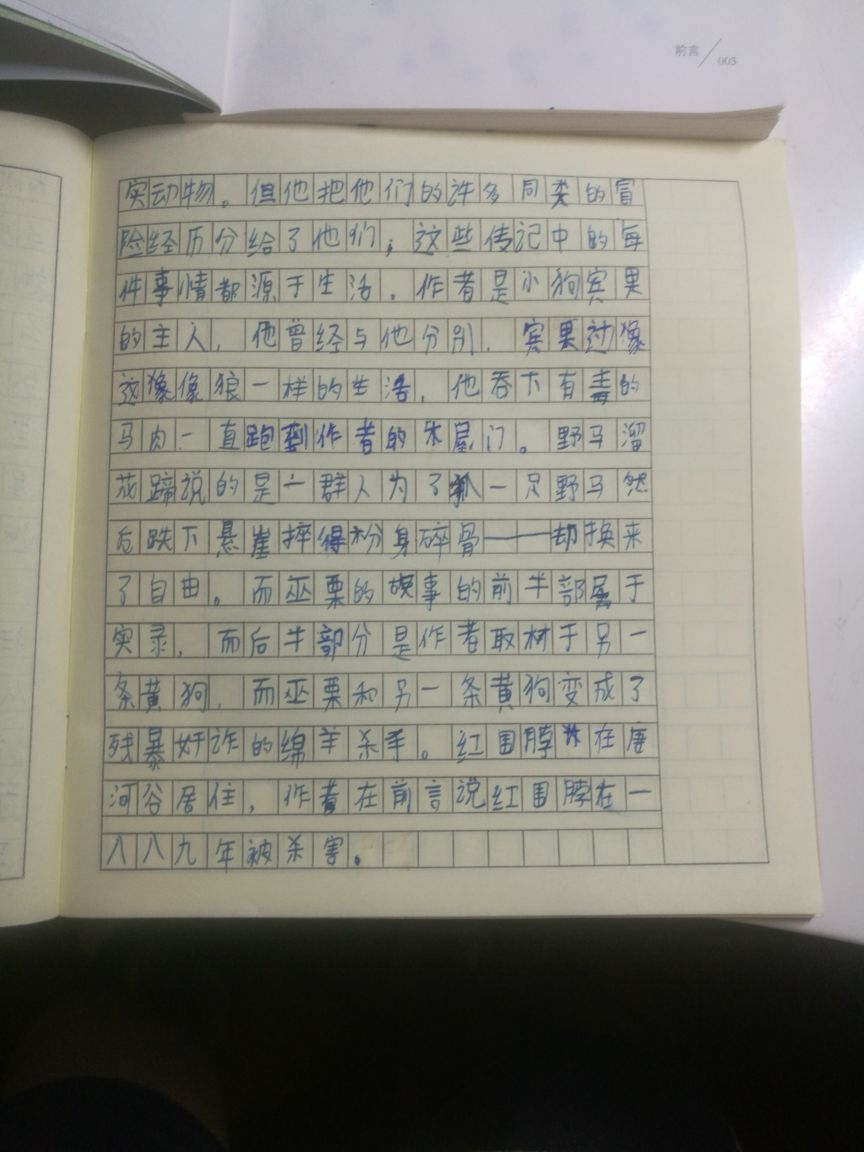 前言/003
实动物。但他把他们的许多同类的冒
险经历分给了他们，这些传记中的每
件事情都源于生活。作者是小狗宾果
的主人，他曾经与他分别，宾果过像
狼一样的生活，他吞下有毒的
马肉一直跑到作者的木屋门。野马溜
花蹄说的是一群人为了抓一只野马然
后跌下悬崖摔得粉身碎骨——却换来
了自由。而巫栗的故事的前半部属于
实录，而后半部分是作者取材于另一
条黄狗，而巫栗和另一条黄狗变成了
残暴奸诈的绵羊杀手。红围脖在唐
河谷居住，作者在前言说红围脖在一
八八九年被杀害。